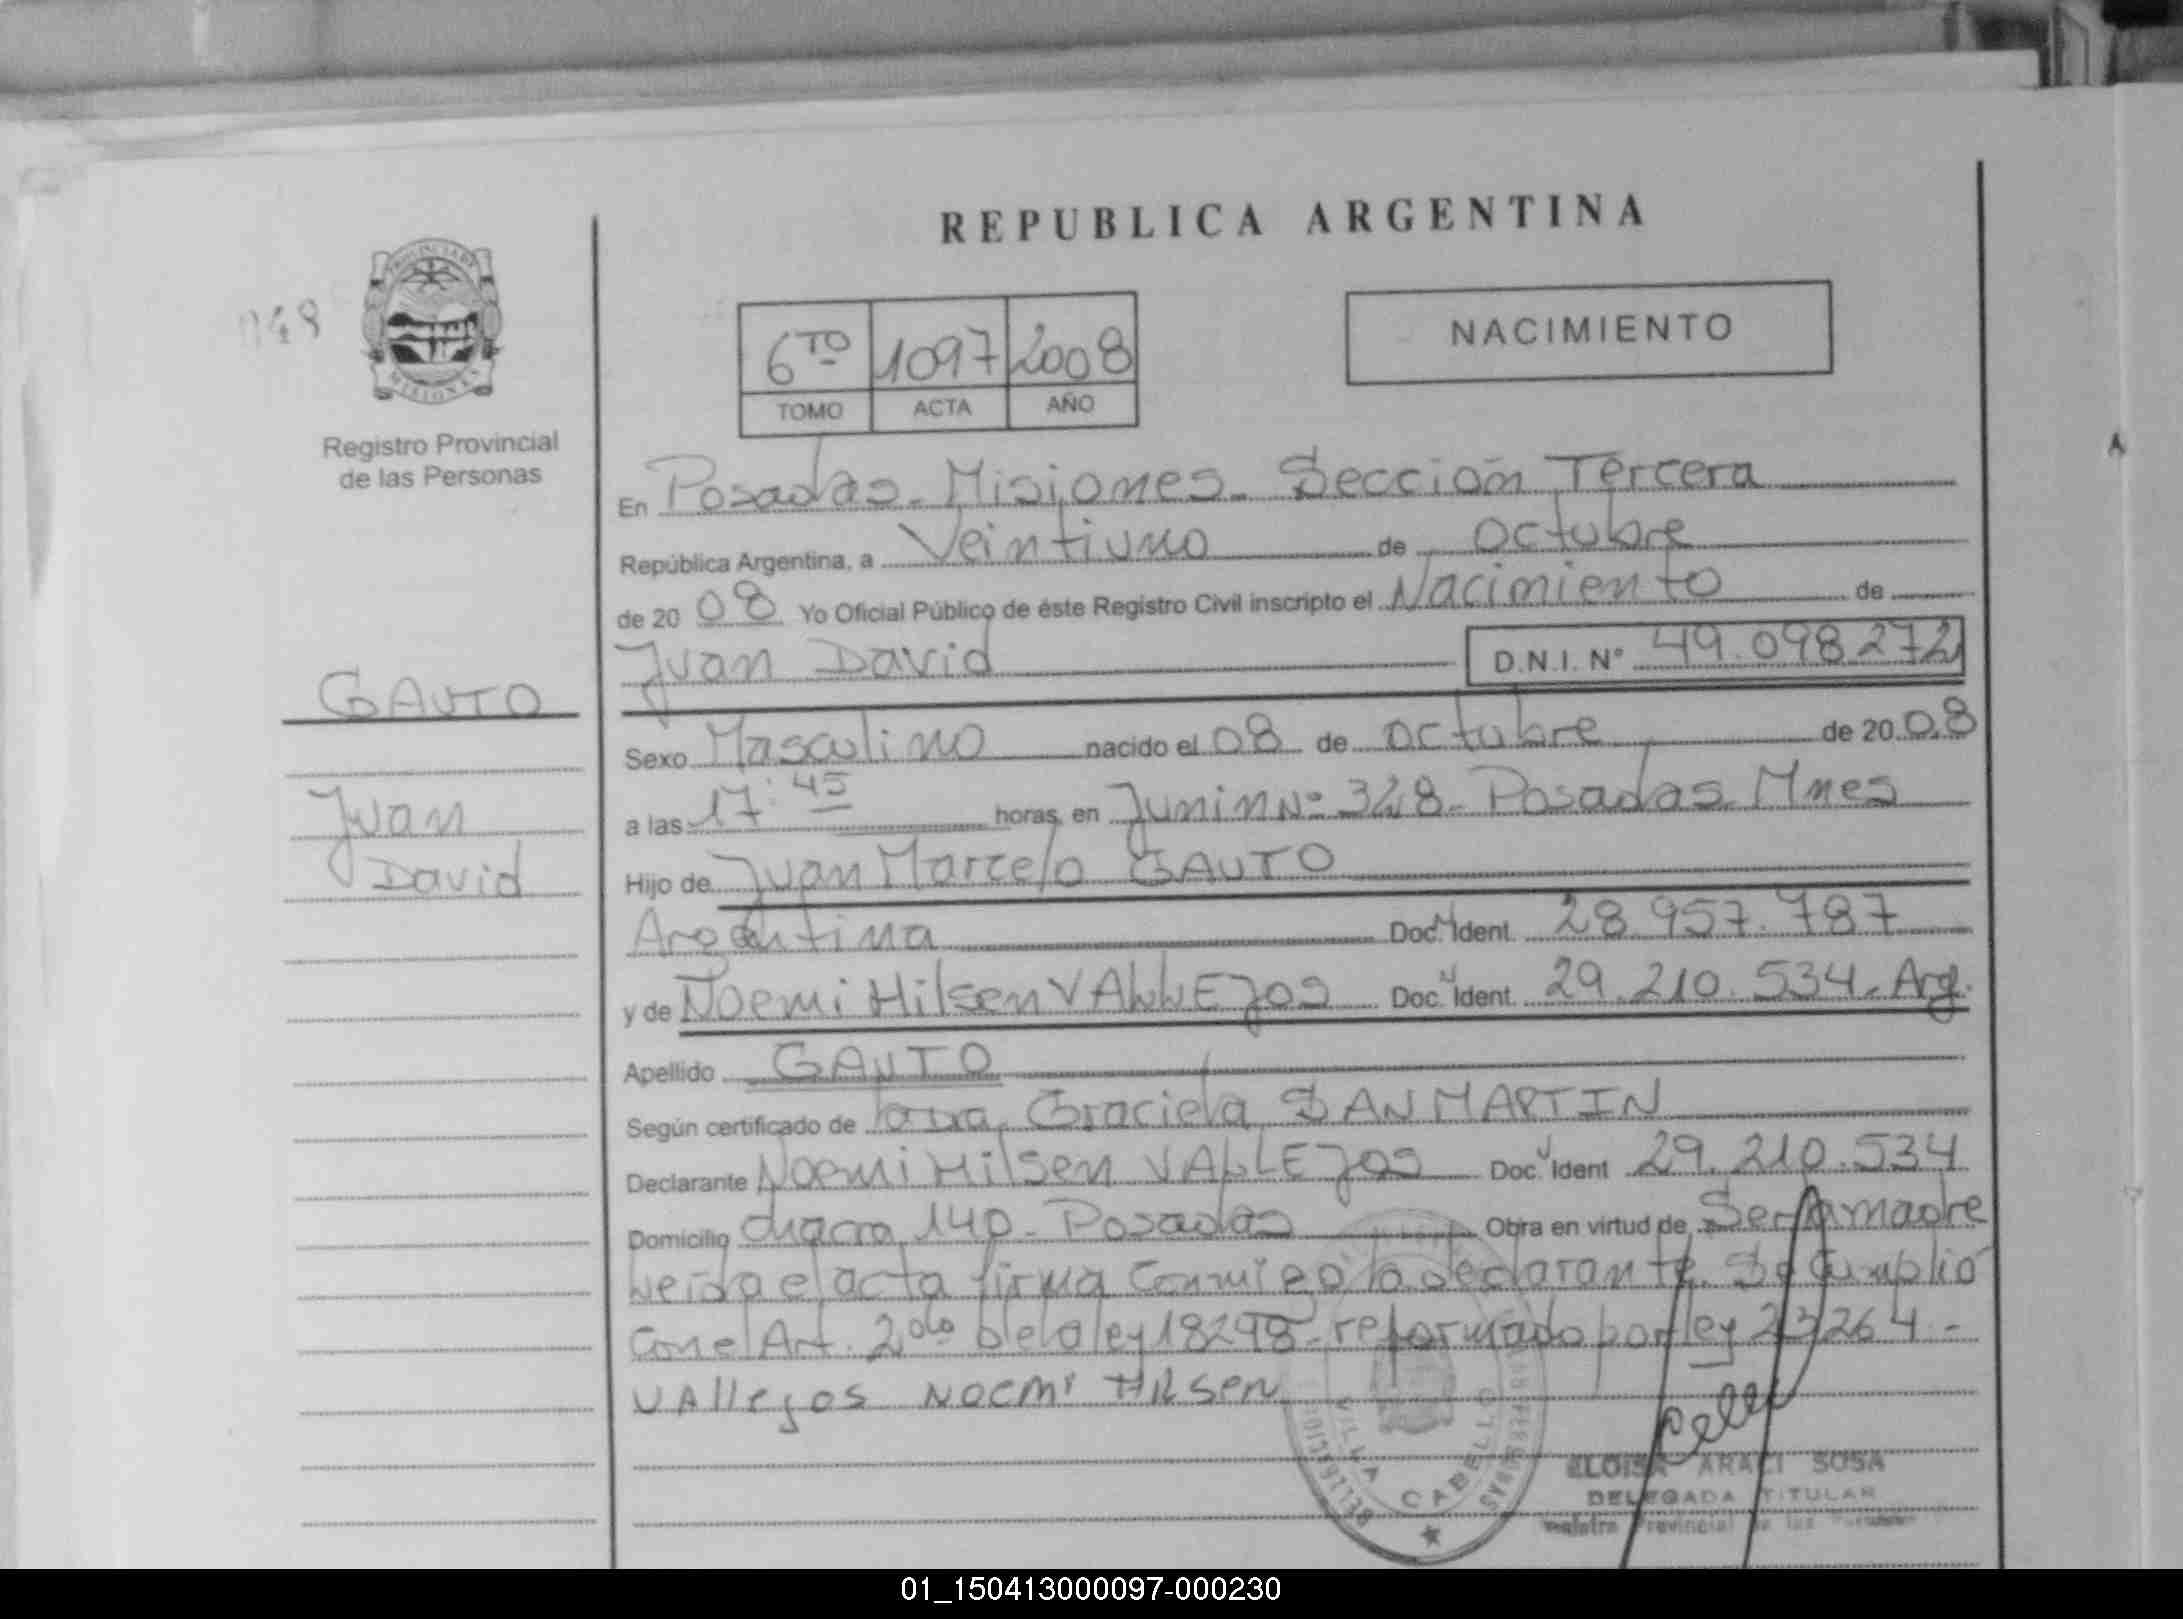 REPUBLICA ARGENTINA
PROVINCIA DE
MISIONES
Registro Provincial
de las Personas
6TO 1097 2008
TOMO ACTA AÑO
NACIMIENTO
En Posadas - Misiones - Sección Tercera
República Argentina, a Veintiuno de octubre
de 2008 Yo Oficial Público de éste Registro Civil inscripto el Nacimiento de
Juan David D.N.I. Nº 49.098.272
GAUTO
Juan
David
Sexo Masculino nacido el 08 de octubre de 2008
a las 17:45 horas, en Junin Nº 328 - Posadas - Mnes
Hijo de Juan Marcelo GAUTO
Argentina Doc. Ident. 28.957.787
y de Noemi Hilsen VALLEJOS Doc. Ident. 29.210.534 - Arg.
Apellido GAUTO
Según certificado de Graciela SAN MARTIN
Declarante Noemi Hilsen VALLEJOS Doc. Ident 29.210.534
Domicilio chacra 140 - Posadas Obra en virtud de Ser la madre
Leída el acta firma conmigo la declarante. Se cumplió
con el Art. 2do de la ley 18248 - reformado por ley 23264 -
VAllejos NOEMI HILSEN
VILLA CABELLO
ELOISA ARACI SOSA
DELEGADA TITULAR
Registro Provincial de las Personas
01_150413000097-000230